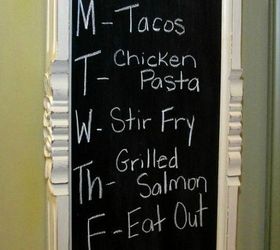 M- Tacos
T- Chicken
Pasta
W- Stir Fry
Th- Grilled
Salmon
F- Eat Out